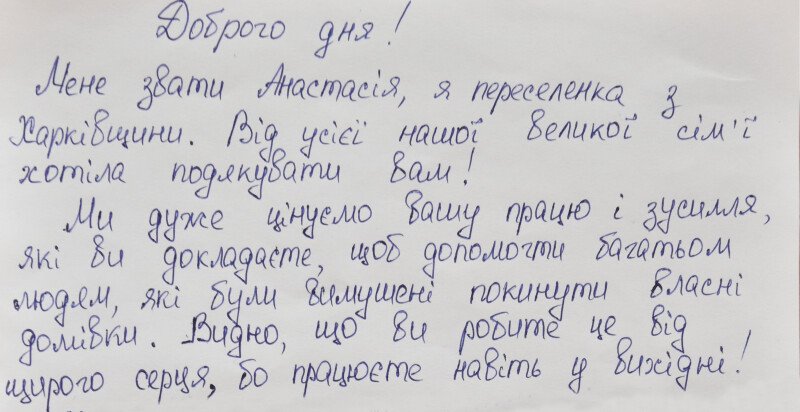 Доброго дня!
Мене звати Анастасія, я переселенка з
Харківщини. Від усієї нашої великої сім'ї
хотіла подякувати вам!
Ми дуже цінуємо вашу працю і зусилля,
які ви докладаєте, щоб допомогти багатьом
людям, які були вимушені покинути власні
домівки. Видно, що ви робите це від
щирого серця, бо працюєте навіть у вихідні!